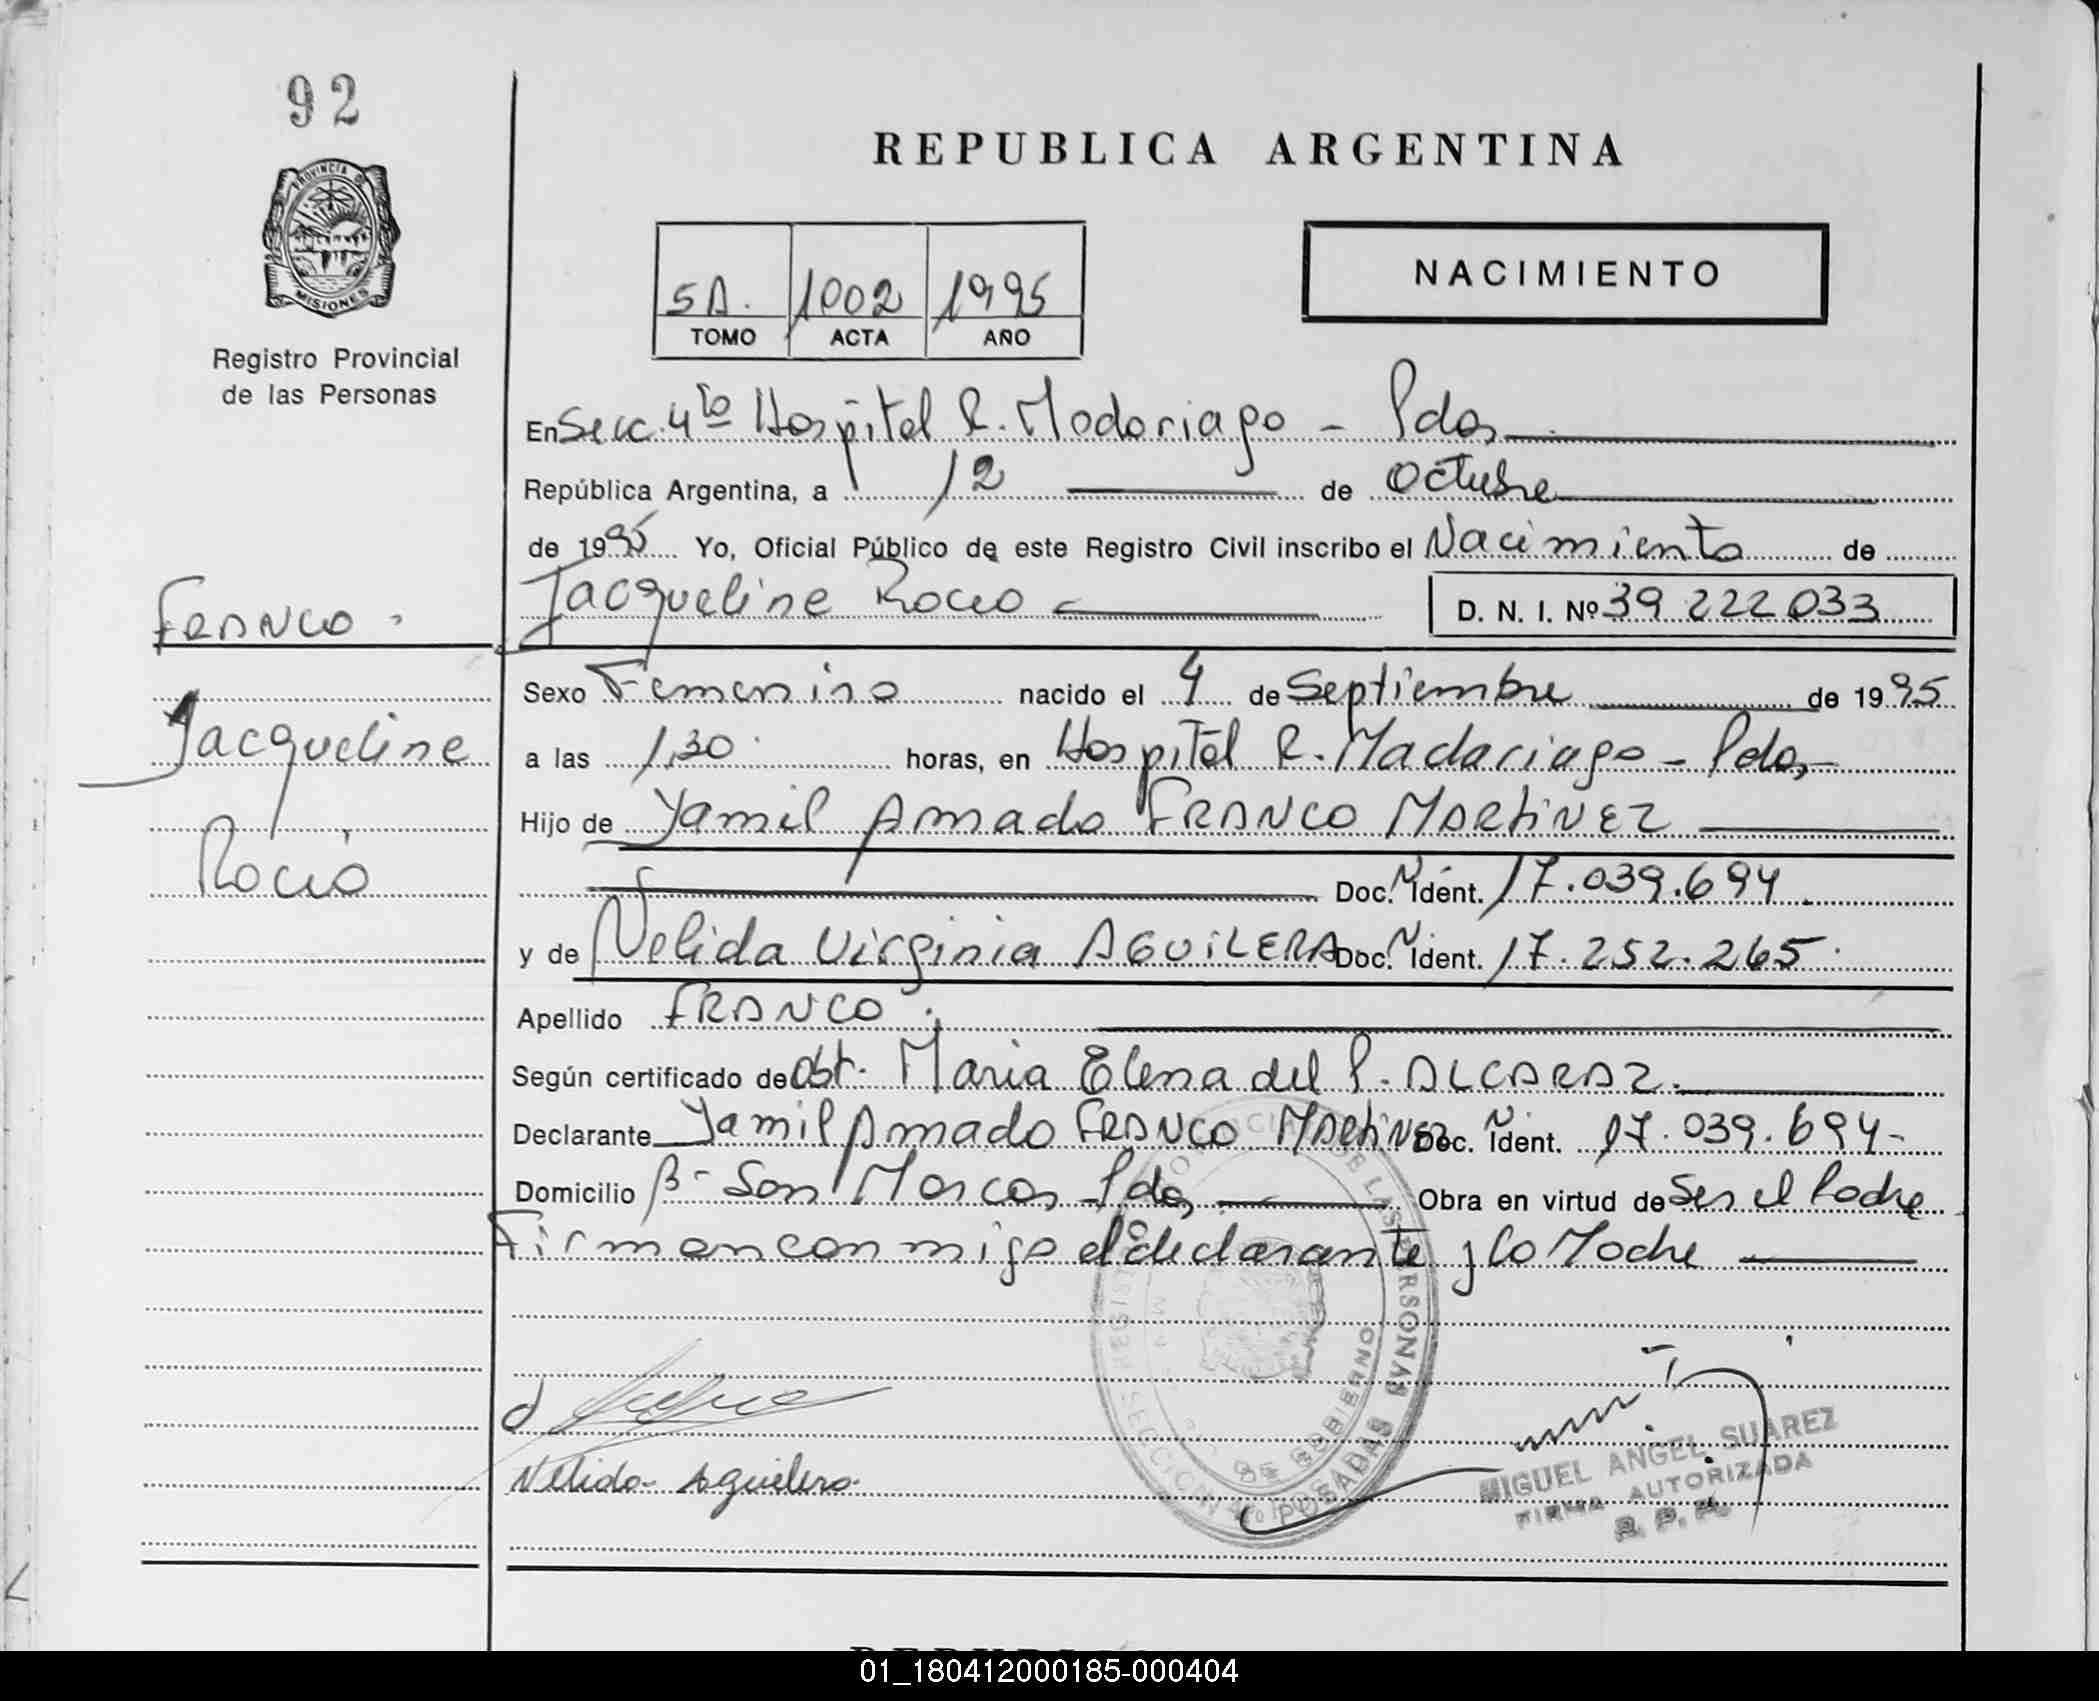 92
PROVINCIA DE
MISIONES
Registro Provincial
de las Personas
REPUBLICA ARGENTINA
5A. 1002 1995
TOMO ACTA AÑO
NACIMIENTO
En Secc. 4ta Hospital R. Madariaga - Pdas,
República Argentina, a 12 de Octubre
de 1995 Yo, Oficial Público de este Registro Civil inscribo el Nacimiento de
Jacqueline Rocio D. N. I. Nº 39.222.033
FRANCO
Jacqueline
Rocio
Sexo Femenino nacido el 4 de Septiembre de 1995
a las 1,30 horas, en Hospital R. Madariaga - Pdas,
Hijo de Yamil Amado FRANCO MARtiNEZ
Doc. Ident. 17.039.694
y de Nelida Virginia AGUiLERA Doc. Ident. 17.252.265
Apellido FRANCO.
Según certificado de Obt. Maria Elena del P. ALCARAZ.
Declarante Yamil Amado FRANCO MARtiNEZ Doc. Ident. 17.039.694-
Domicilio Bº San Marcos, Pdas, Obra en virtud de Ser el Padre
Firman conmigo el declarante y la Madre
Nelida Aguilera
DE GOBIERNO
POSADAS
MIGUEL ANGEL SUAREZ
FIRMA AUTORIZADA
R. P. P.
01_180412000185-000404